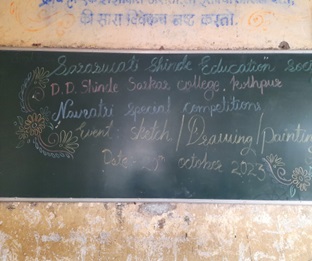 की सारा विवेकच नष्ट करतो.
Saraswati Shinde Education Soci
D. D. Shinde Sarkar college, kothpur
Navratri special competitions
Event: sketch / Drawing / painting
Date: october 2023